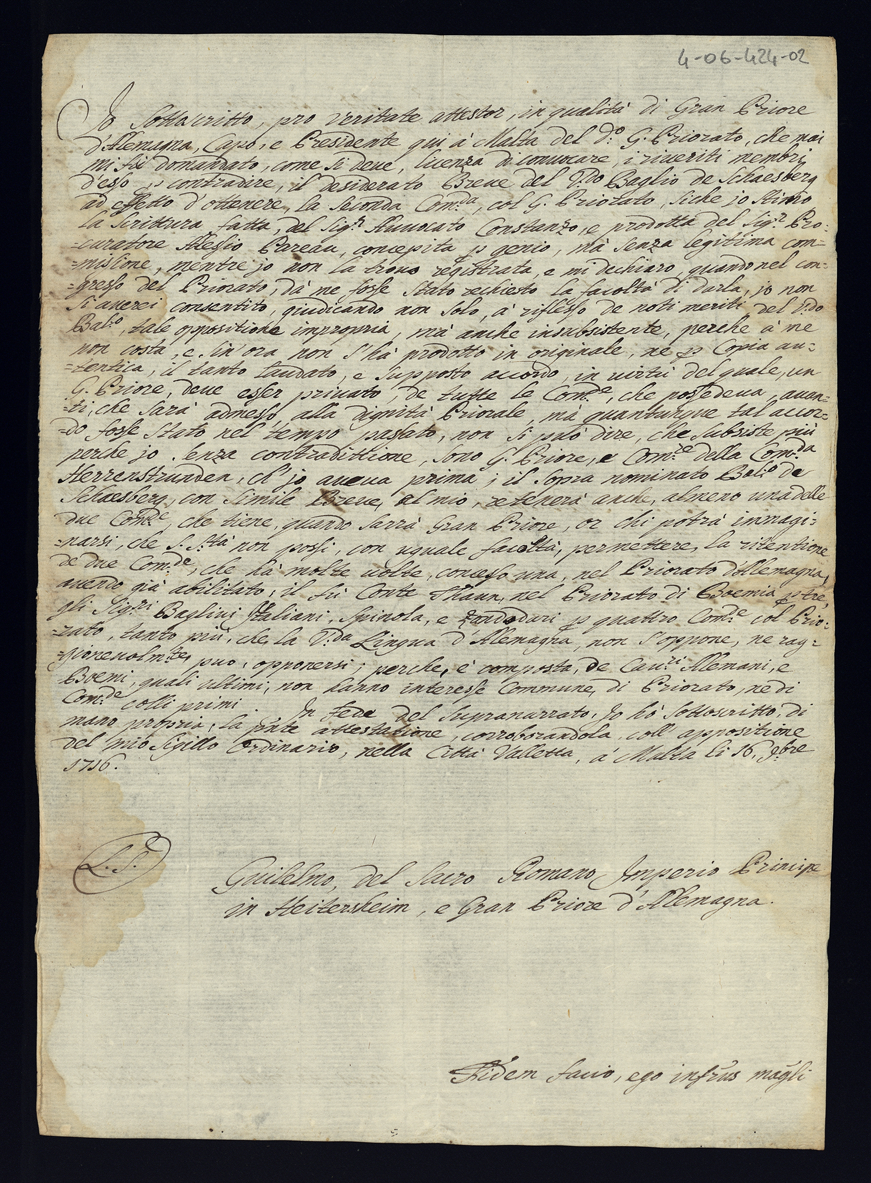 4-06-424-02
Io Sottoscritto, pro veritate attestor, in qualità di Gran Priore
d'Alemagna, Capo, e Presidente qui à Malta del d:o G: Priorato, che mai
mi fù domandato, come si deve, licenza di convocare, i riveriti membri
d'esso p contradire, il desiderato Breve del P:do Baglio de Schaesberg
ad effetto d'ottenere, la seconda Com:da, col G: Priorato, siche jo stimo
la scrittura fatta, del Sig:r Avvocato Constanzo, e prodotta del Sig:r Pro:
=curatore Alessio Pareau, concepita p genio, mà senza legitima com=
=missione, mentre jo non la trovo registrata, e mi dechiaro, quando nel con=
=gresso del Priorato, dà me fosse stato rechiesto la facoltà di darla, jo non
l'averei consentito, giudicando non solo, à riflesso de noti meriti del P:do
Bal:o, tale oppositione impropria, mà anche insubsistente, perche à me
non costa, e sin'ora non s'hà prodotto in originale, ne p Copia au=
=tentica, il tanto laudato, e supposto accordo, in virtù del quale, un
G: Priore, deve esser privato, de tutte le Com:de, che possedeva, avan=
=ti, che sarà admesso alla dignità Priorale, mà quantunque tal accor=
=do fosse stato nel tempo passato, non si può dire, che subsiste più
perche jo senza contradittione, sono G: Priore, e Com:re della Com:da
Herrenstrunden, ch'jo aveva prima; il sopra nominato Bal:o de
Schaesberg, con simile Breve, al mio, retenerà anche, almeno una delle
due Com:de, che tiene, quando sarrà Gran Priore, or chi potrà immagi=
=narsi, che S. S:tà non possi, con uguale facoltà, permettere, la ritentione
de due Com:de, che hà molte volte, concesso una, nel Priorato d'Allemagna,
avendo già abilitato, il fù Conte Thaun, nel Priorato di Boemia p tre,
gli Sig:ri Baglivi Italiani, Spinola, e Zondodari p quattro Com:de col Prio=
=rato, tanto più, che la V:da Lingua d'Alemagna, non s'oppone, ne rag=
=gionevolm:te, può, opponersi, perche, è composta, de Cav:ri Alemani, e
Boemi, quali ultimi, non hanno interesse Commune, di Priorato, ne di
Com:de colli primi. In fede del supranarrato, Io hò sottoscritto, di
mano propria, la pnte attestatione, corroborandola, coll'appositione
del mio sigillo Ordinario, nella Città Valletta, à Malta li 16. 9bre
1716.
L. S.
Guilelmo, del Sacro Romano Imperio Principe
in Heitersheim, e Gran Priore d'Allemagna.
Fidem facio, ego infrus magli